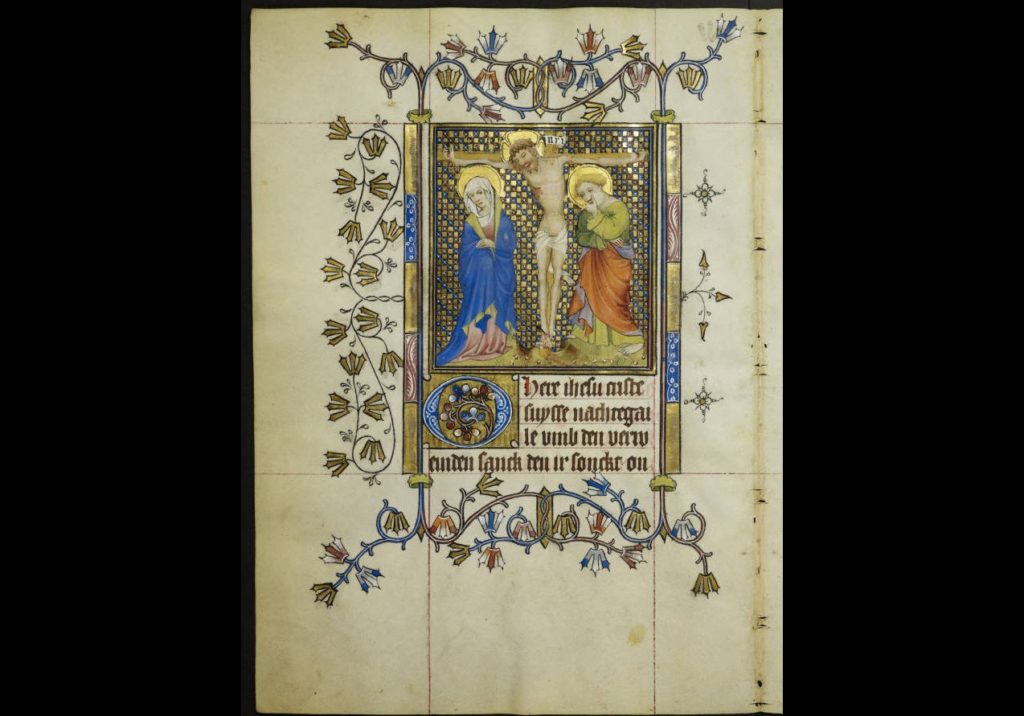 INRI
O here ihesu criste
suysse nachtegai
le vmb den verw
enden sanck den ir sonckt on